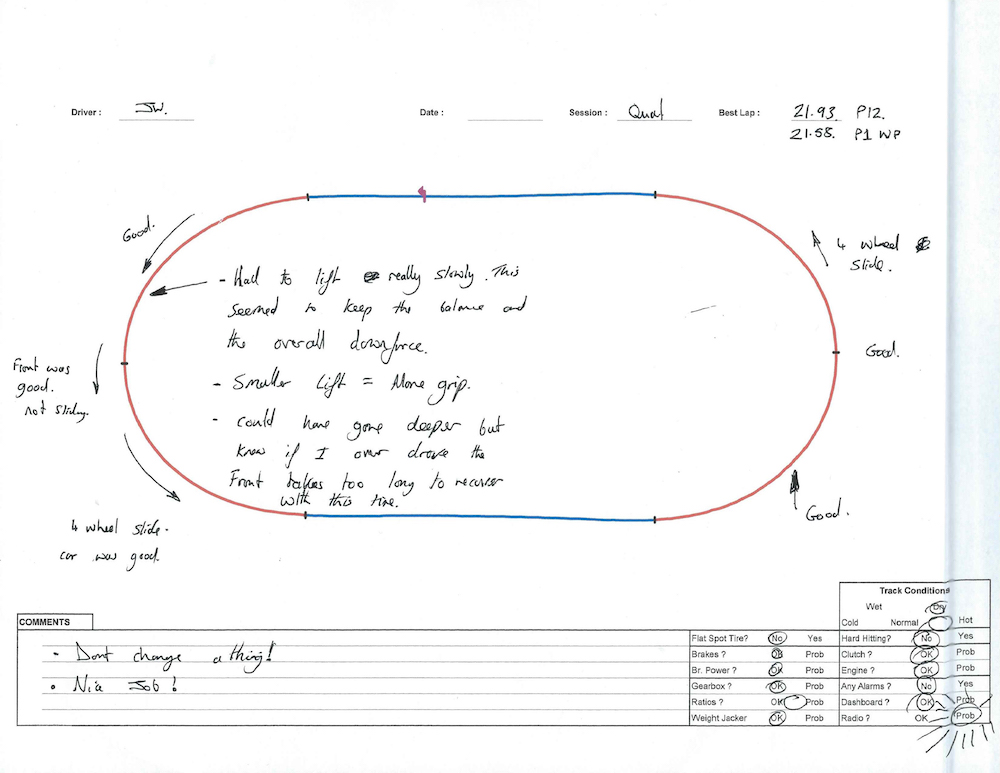 Driver : JW. Date : Session : Qual Best Lap : 21.93. P12.
21.58. P1 WP
Good.
4 wheel
slide.
- Had to lift really slowly. This
seemed to keep the balance and
the overall downforce.
Good.
Front was
good.
not sliding.
- Smaller lift = More grip.
- could have gone deeper but
know if I over drove the
Front takes too long to recover
with this tire.
Good.
4 wheel slide.
car was good.
Track Conditions
Wet Dry
Cold Normal Hot
COMMENTS
Flat Spot Tire? No Yes Hard Hitting? No Yes
- Dont change a thing! Brakes ? OK Prob Clutch ? OK Prob
Br. Power ? OK Prob Engine ? OK Prob
• Job ! Gearbox ? OK Prob Any Alarms ? No Yes
Ratios ? OK Prob Dashboard ? OK Prob
Weight Jacker OK Prob Radio ? OK Prob